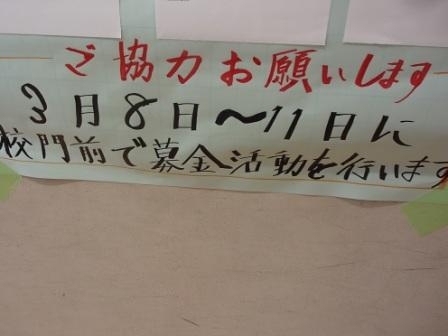 ご協力お願いします
3月8日～11日に
校門前で募金活動を行います